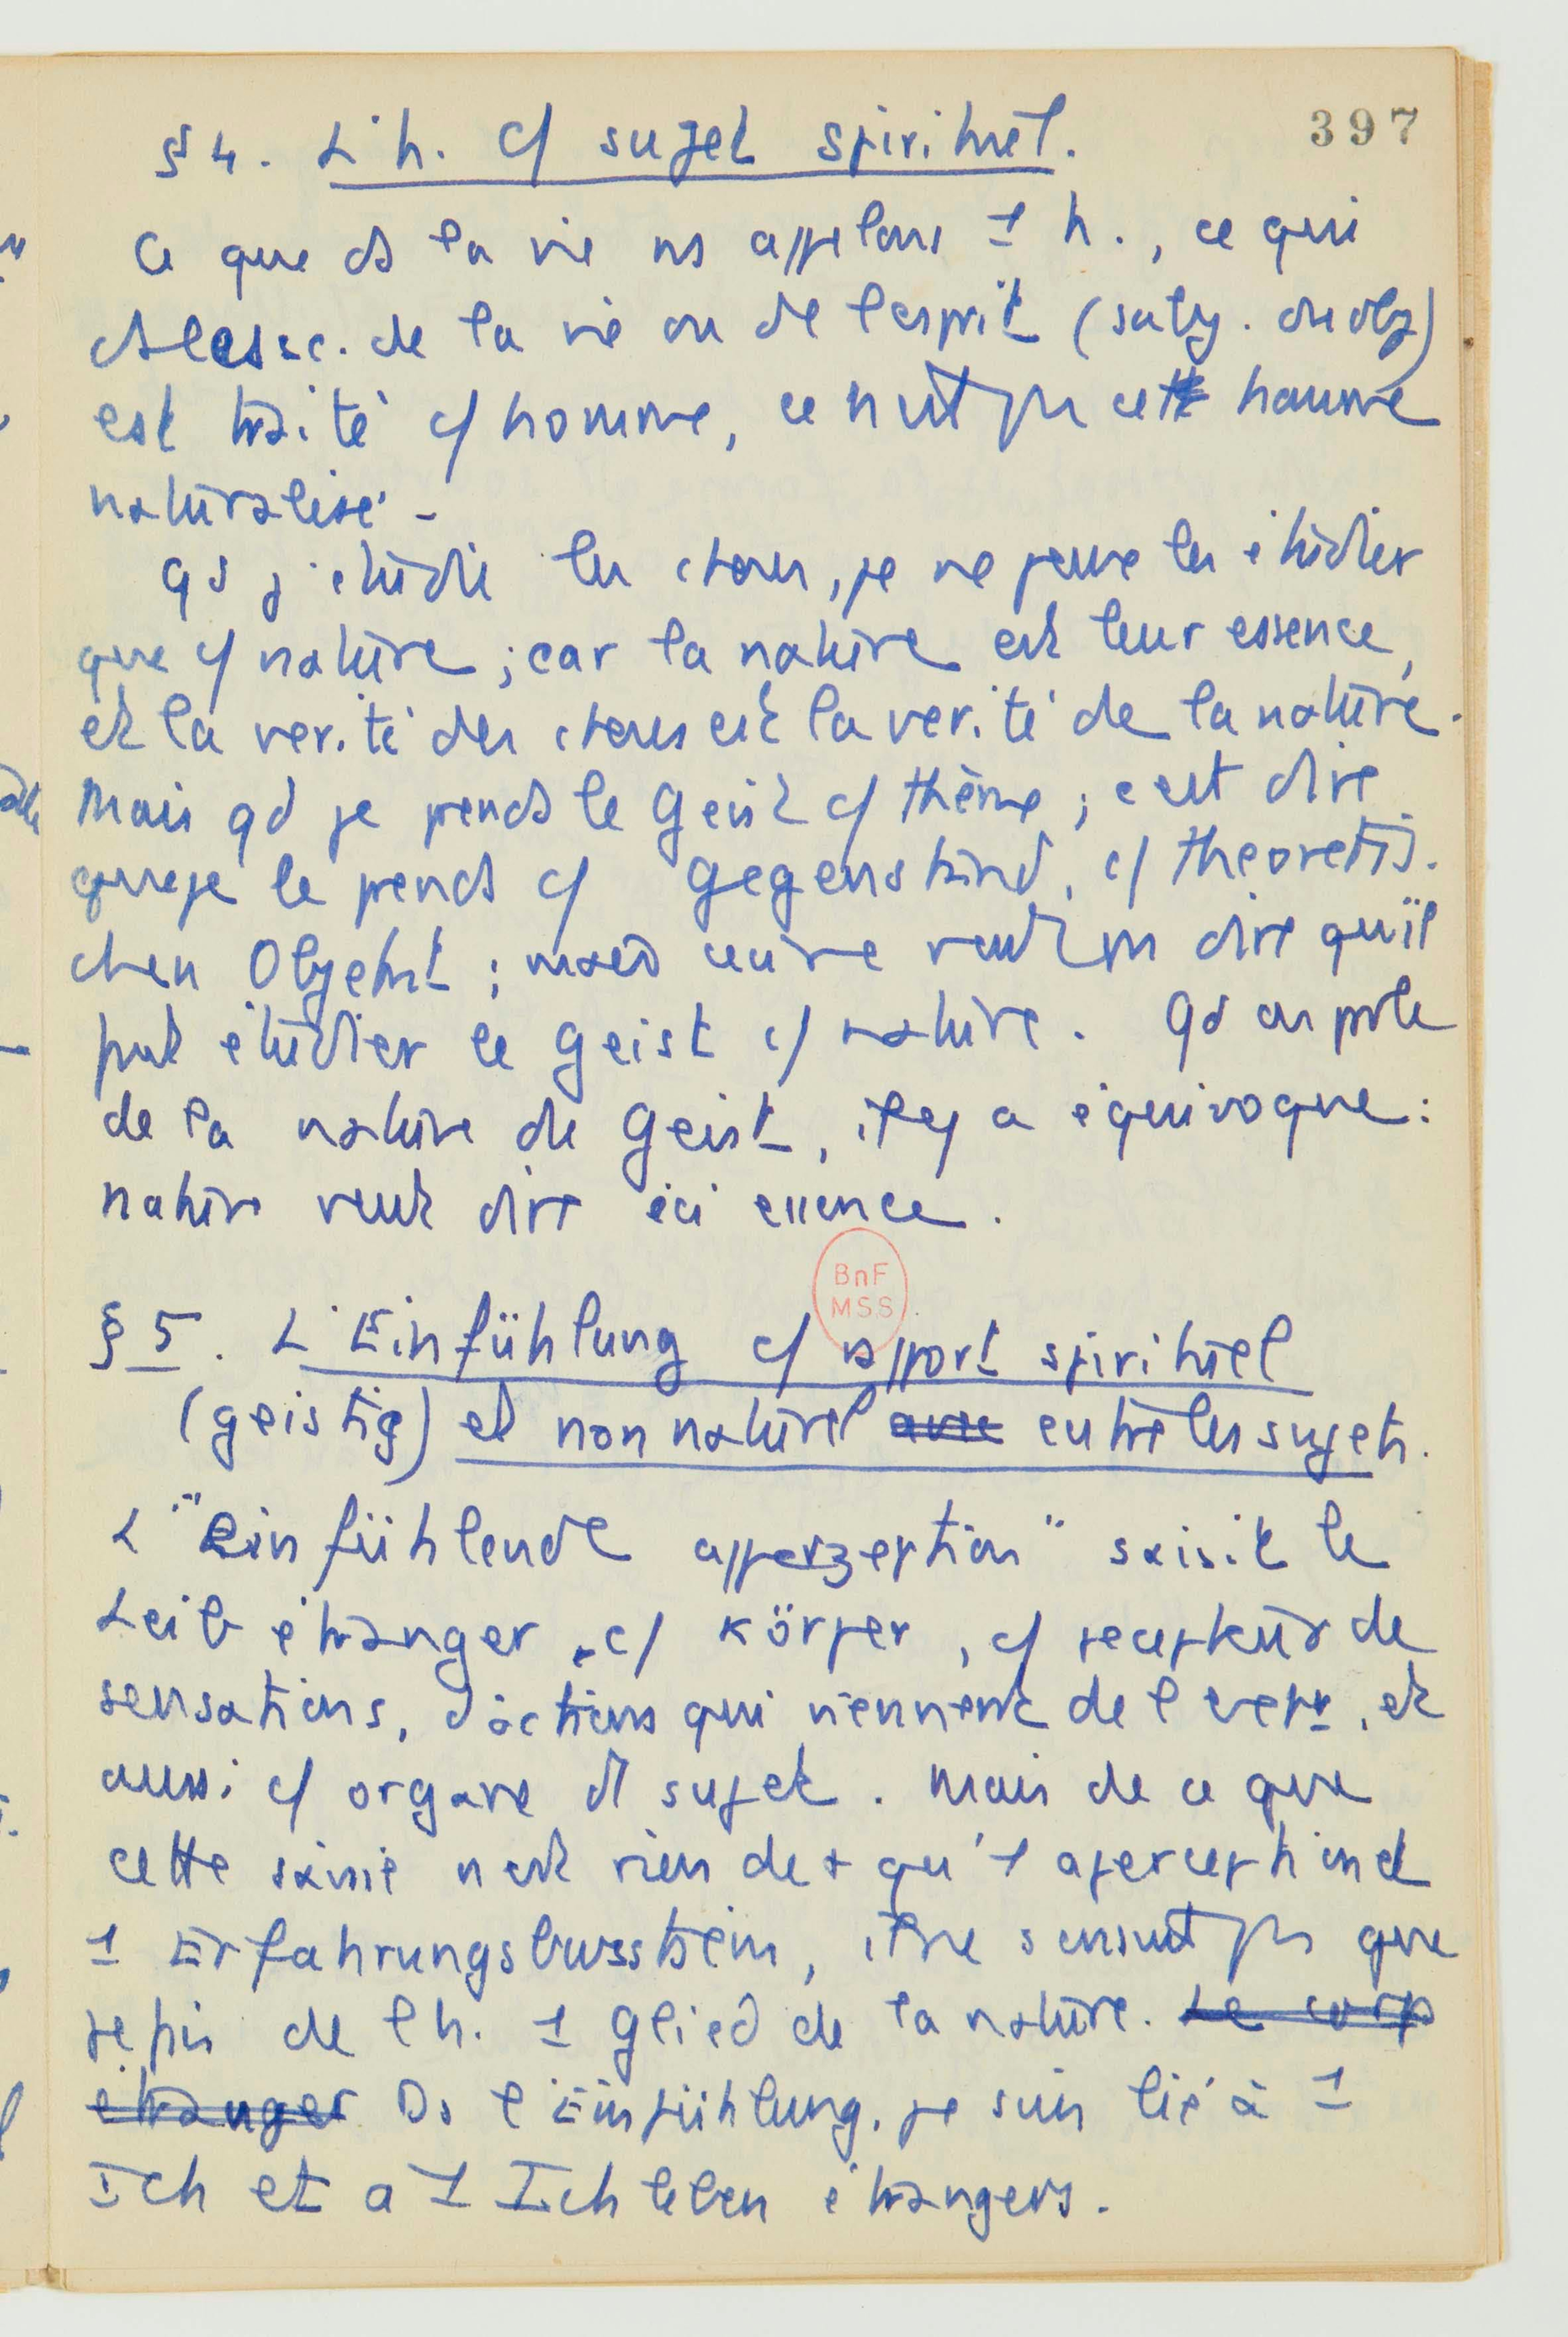 397
§ 4. L'h. c/ sujet spirituel.
Ce que ds la vie ns appelons 1 h., ce qui
ds les sc. de la vie ou de l'esprit (subj. ou obj)
est traité c/ homme, ce n'est pas cette homme
naturalisé.
qd j'étudie les choses, je ne peux les étudier
que c/ nature ; car la nature est leur essence,
et la vérité des choses est la vérité de la nature.
Mais qd je prends le Geist c/ thème, c'est dire
que je le prends c/ Gegenstand, c/ theoretis-
chen Objekt ; mais cela ne veut pas dire qu'il
faut étudier le Geist c/ nature. Qd on parle
de la nature du Geist, il y a équivoque :
nature veut dire ici essence.
BnF
MSS
§ 5. L'Einfühlung c/ rapport spirituel
(geistig) et non naturel avec entre les sujets.
L'"einfühlende apperzeption" saisit le
Leib étranger, c/ Körper, c/ recepteur de
sensations, d'actions qui viennent de l'ext, et
aussi c/ organe d sujet. Mais de ce que
cette saisie n'est rien de + qu'1 aperception d
1 Erfahrungsbwsstsein, il ne s'ensuit pas que
je fais de l'h. 1 Glied de la nature. Le corp
étranger Ds l'Einfühlung, je suis lié à 1
Ich et a 1 Ichleben étrangers.